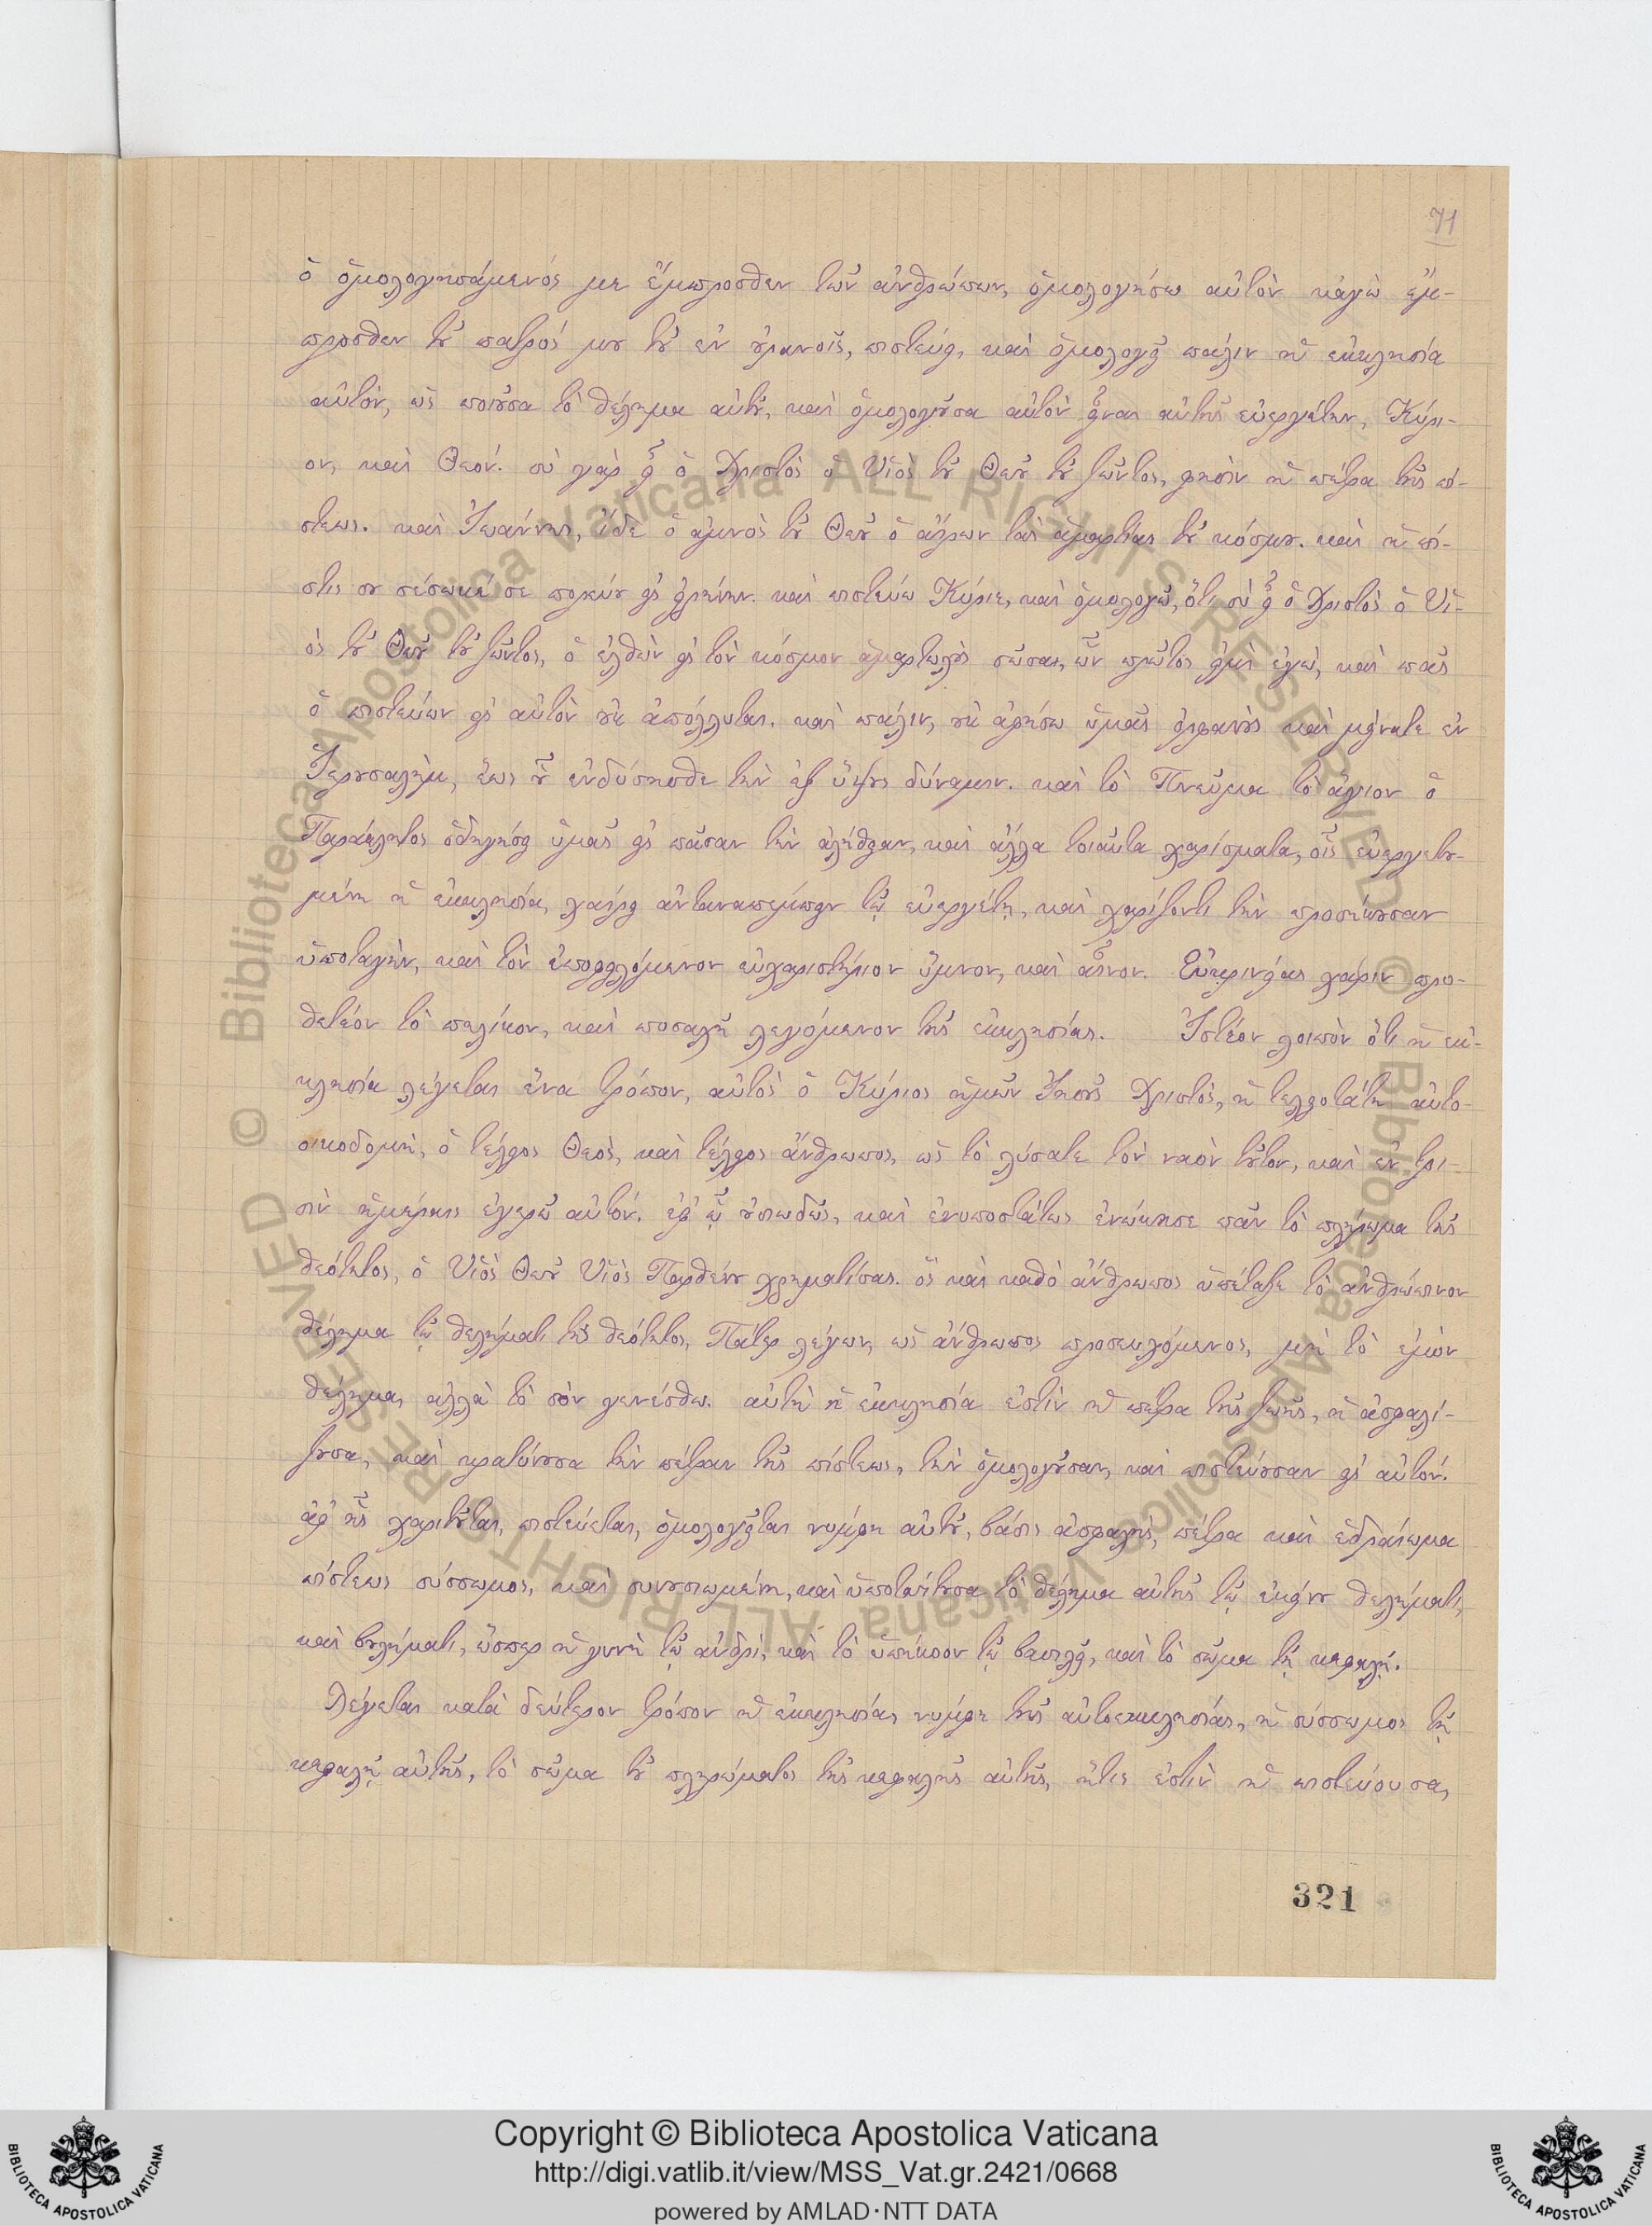 71
ὁ ὁμολογησάμενός με ἔμπροσθεν τῶν ἀνθρώπων, ὁμολογήσω αὐτὸν κᾀγὼ ἔμ-
προσθεν τοῦ πατρός μου τοῦ ἐν οὐρανοῖς, πιστεύει, καὶ ὁμολογεῖ πάλιν ἡ ἐκκλησία
αὐτὸν, ὡς ποιοῦσα τὸ θέλημα αὐτοῦ, καὶ ὁμολογοῦσα αὐτὸν εἶναι αὐτῆς εὐεργέτην, Κύρι-
ον, καὶ Θεόν. σὺ γὰρ εἶ ὁ Χριστὸς ὁ Υἱὸς τοῦ Θεοῦ τοῦ ζῶντος, φησὶν ἡ πέτρα τῆς πί-
στεως. καὶ Ἰωάννης, ἴδε ὁ ἀμνὸς τοῦ Θεοῦ ὁ αἴρων τὰς ἁμαρτίας τοῦ κόσμου. καὶ ἡ πί-
στις σου σέσωκέ σε πορεύου εἰς εἰρήνην. καὶ πιστεύω Κύριε, καὶ ὁμολογῶ, ὅτι σὺ εἶ ὁ Χριστὸς ὁ Υἱ-
ὸς τοῦ Θεοῦ τοῦ ζῶντος, ὁ ἐλθὼν εἰς τὸν κόσμον ἁμαρτωλοὺς σῶσαι, ὧν πρῶτος εἰμὶ ἐγώ, καὶ πᾶς
ὁ πιστεύων εἰς αὐτὸν οὐκ ἀπόλλυται. καὶ πάλιν, οὐκ ἀφήσω ὑμᾶς ὀρφανοὺς καὶ μείνατε ἐν
Ἱερουσαλὴμ, ἕως οὗ ἐνδύσησθε τὴν ἐξ ὕψους δύναμιν. καὶ τὸ Πνεῦμα τὸ ἅγιον ὁ
Παράκλητος ὁδηγήσει ὑμᾶς εἰς πᾶσαν τὴν ἀλήθειαν, καὶ ἄλλα τοιαῦτα χαρίσματα, οἷς εὐεργετου-
μένη ἡ ἐκκλησία, χαίρει ἀνταναπέμπειν τῷ εὐεργέτῃ, καὶ χαρίζοντι τὴν προσήκουσαν
ὑποταγὴν, καὶ τὸν ἐποφειλόμενον εὐχαριστήριον ὕμνον, καὶ αἶνον. Εὐκρινείας χάριν προ-
θετέον τὸ πηλίκον, καὶ ποσαχῆ λεγόμενον τῆς ἐκκλησίας. Ἰστέον λοιπὸν ὅτι ἡ ἐκ-
κλησία λέγεται ἕνα τρόπον, αὐτὸς ὁ Κύριος ἡμῶν Ἰησοῦς Χριστὸς, ἡ τελειοτάτη αὐτο-
οικοδομὴ, ὁ τέλειος Θεὸς, καὶ τέλειος ἄνθρωπος, ὡς τὸ λύσατε τὸν ναὸν τοῦτον, καὶ ἐν τρι-
σὶν ἡμέραις ἐγερῶ αὐτόν. ἐφ' ᾧ οὐσιωδῶς, καὶ ἐνυποστάτως ἐνῴκησε πᾶν τὸ πλήρωμα τῆς
θεότητος, ὁ Υἱὸς Θεοῦ Υἱὸς Παρθένου χρηματίσας. ὃς καὶ καθὸ ἄνθρωπος ὑπέταξε τὸ ἀνθρώπινον
θέλημα τῷ θελήματι τῆς θεότητος, Πάτερ λέγων, ὡς ἄνθρωπος προσευχόμενος, μὴ τὸ ἐμὸν
θέλημα, ἀλλὰ τὸ σὸν γενέσθω. αὐτὴ ἡ ἐκκλησία ἐστὶν ἡ πέτρα τῆς ζωῆς, ἡ ἀσφαλί-
ζουσα, καὶ κρατύνουσα τὴν πέτραν τῆς πίστεως, τὴν ὁμολογοῦσαν, καὶ πιστεύουσαν εἰς αὐτόν.
ἀφ' ἧς χαριτοῦται, πιστεύεται, ὁμολογεῖται νύμφη αὐτοῦ, βάσις ἀσφαλὴς, πέτρα καὶ ἑδραίωμα
πίστεως σύσσωμος, καὶ συνουσιωμένη, καὶ ὑποτάττουσα τὸ θέλημα αὐτῆς τῷ ἐκείνου θελήματι,
καὶ βουλήματι, ὥσπερ ἡ γυνὴ τῷ ἀνδρὶ, καὶ τὸ ὑπήκοον τῷ βασιλεῖ, καὶ τὸ σῶμα τῇ κεφαλῇ.
Λέγεται κατὰ δεύτερον τρόπον ἡ ἐκκλησία, νύμφη τῆς αὐτοεκκλησίας, ἡ σύσσωμος τῇ
κεφαλῇ αὐτῆς, τὸ σῶμα τοῦ πληρώματος τῆς κεφαλῆς αὐτῆς, ἥτις ἐστὶν ἡ πιστεύουσα,
321
© Biblioteca Apostolica Vaticana ALL RIGHTS RESERVED
© Biblioteca Apostolica Vaticana ALL RIGHTS RESERVED
BIBLIOTECA APOSTOLICA VATICANA
Copyright © Biblioteca Apostolica Vaticana
http://digi.vatlib.it/view/MSS_Vat.gr.2421/0668
powered by AMLAD·NTT DATA
BIBLIOTECA APOSTOLICA VATICANA